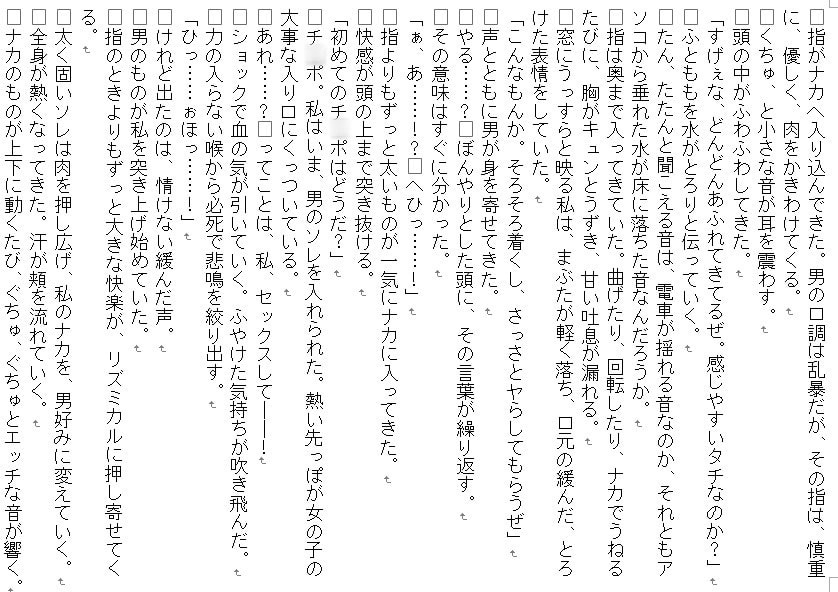 指がナカへ入り込んできた。男の口調は乱暴だが、その指は、慎重
に、優しく、肉をかきわけてくる。
くちゅ、と小さな音が耳を震わす。
頭の中がふわふわしてきた。
「すげぇな、どんどんあふれてきてるぜ。感じやすいタチなのか？」
ふとももを水がとろりと伝っていく。
たん、たたんと聞こえる音は、電車が揺れる音なのか、それともア
ソコから垂れた水が床に落ちた音なんだろうか。
指は奥まで入ってきていた。曲げたり、回転したり、ナカでうねる
たびに、胸がキュンとうずき、甘い吐息が漏れる。
窓にうっすらと映る私は、まぶたが軽く落ち、口元の緩んだ、とろ
けた表情をしていた。
「こんなもんか。そろそろ着くし、さっさとヤらしてもらうぜ」
声とともに男が身を寄せてきた。
やる……？　ぼんやりとした頭に、その言葉が繰り返す。
その意味はすぐに分かった。
「ぁ、あ……！？　へひっ……！」
指よりもずっと太いものが一気にナカに入ってきた。
快感が頭の上まで突き抜ける。
「初めてのチ ポはどうだ？」
チ ポ。私はいま、男のソレを入れられた。熱い先っぽが女の子の
大事な入り口にくっついている。
あれ……？　ってことは、私、セックスして――！
ショックで血の気が引いていく。ふやけた気持ちが吹き飛んだ。
力の入らない喉から必死で悲鳴を絞り出す。
「ひっ……ぉほっ……！」
けれど出たのは、情けない緩んだ声。
男のものが私を突き上げ始めていた。
指のときよりもずっと大きな快楽が、リズミカルに押し寄せてく
る。
太く固いソレは肉を押し広げ、私のナカを、男好みに変えていく。
全身が熱くなってきた。汗が頬を流れていく。
ナカのものが上下に動くたび、ぐちゅ、ぐちゅとエッチな音が響く。